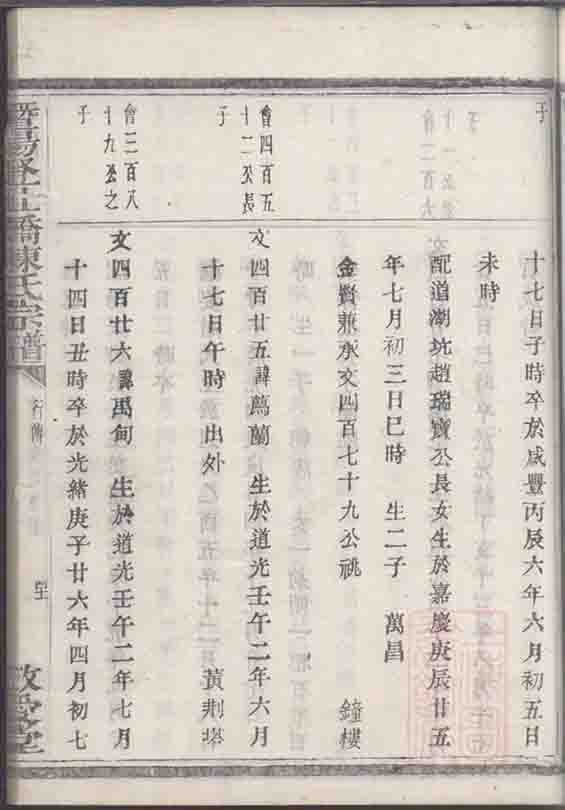 子
十七日子時卒於咸豐丙辰六年六月初五日
未時
配道湖坑趙瑞寶公長女生於嘉慶庚辰廿五
年七月初三日巳時 生二子 萬昌
金賢兼承文四百七十九公祧 鐘樓
會四百五
十二公長
子
文四百廿五諱蔿蘭 生於道光壬午二年六月
十七日午時 出外 黃荆塔
會三百八
十九公之
子
文四百廿六諱禹甸 生於道光壬午二年七月
十四日丑時卒於光緒庚子廿六年四月初七
暨陽 五橋陳氏宗譜
行傳
敬愛堂